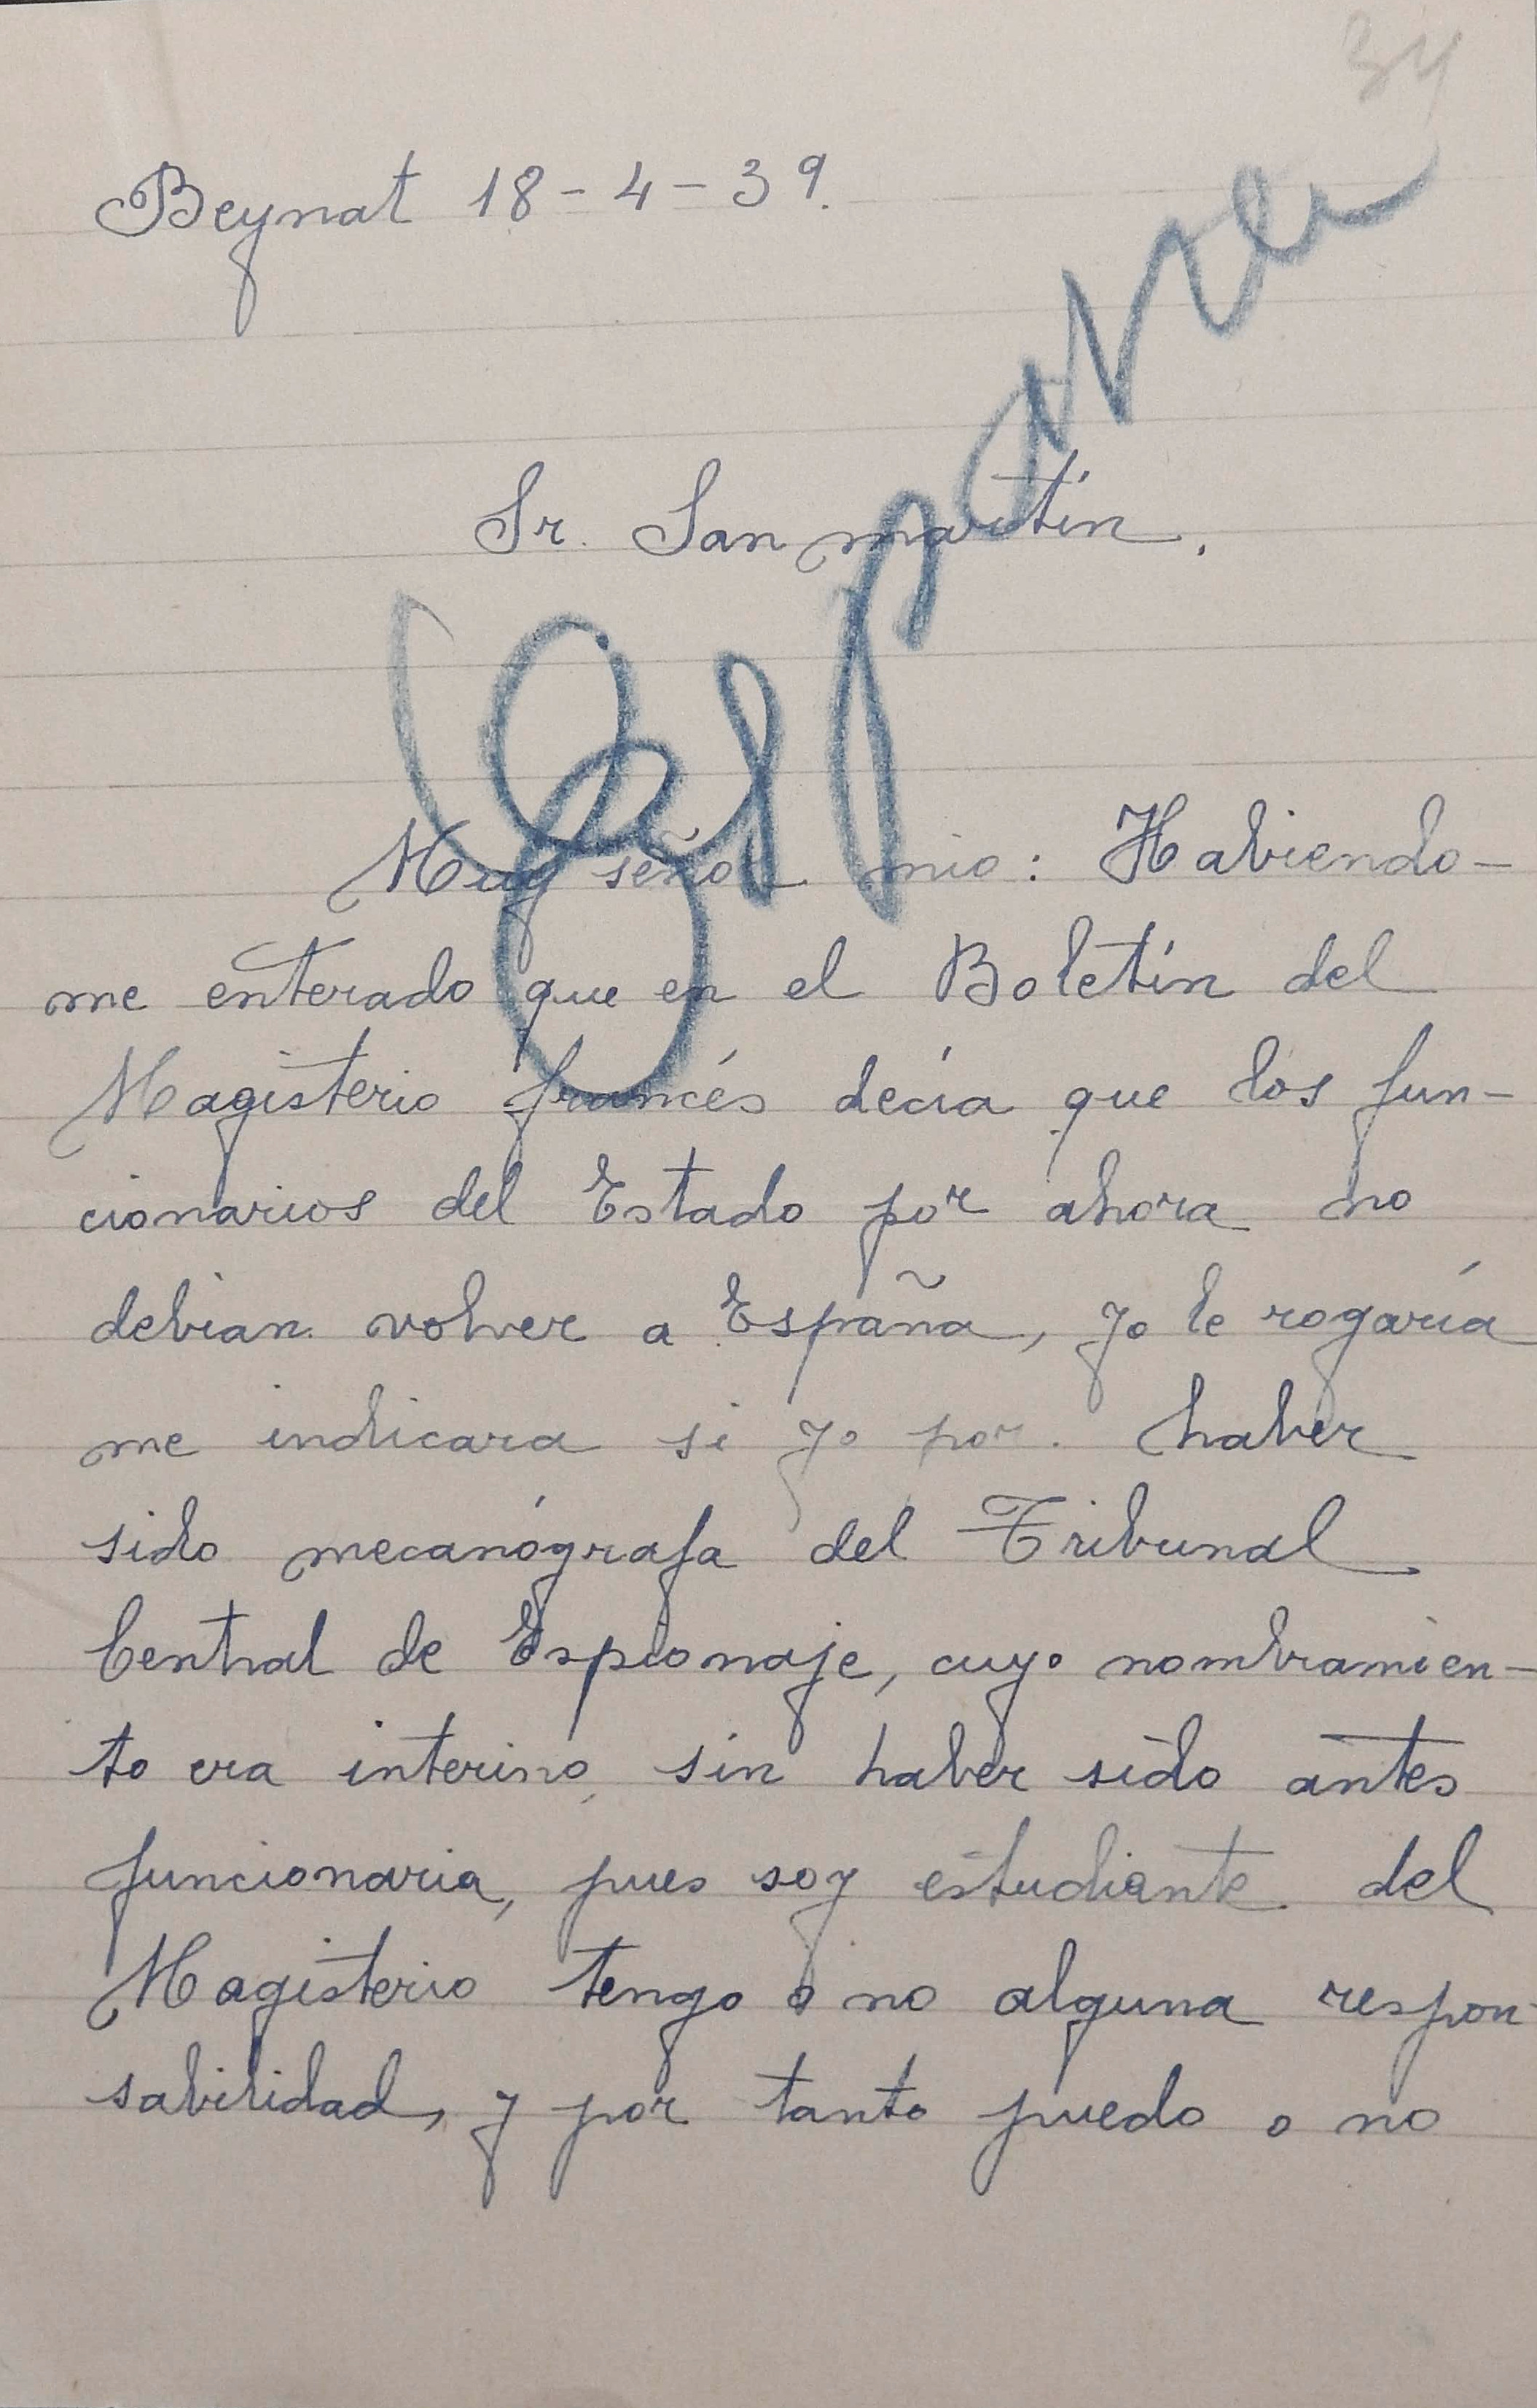 34
Beynat 18-4-39.
Sr. Sanmartín.
Muy señor mio: Habiendo-
me enterado que en el Boletín del
Magisterio francés decía que los fun-
cionarios del Estado por ahora no
debian volver a España, yo le rogaría
me indicara si yo por haber
sido mecanógrafa del Tribunal
Central de Espionaje, cuyo nombramien-
to era interino, sin haber sido antes
funcionaria, pues soy estudiante del
Magisterio tengo o no alguna respon-
sabilidad, y por tanto puedo o no